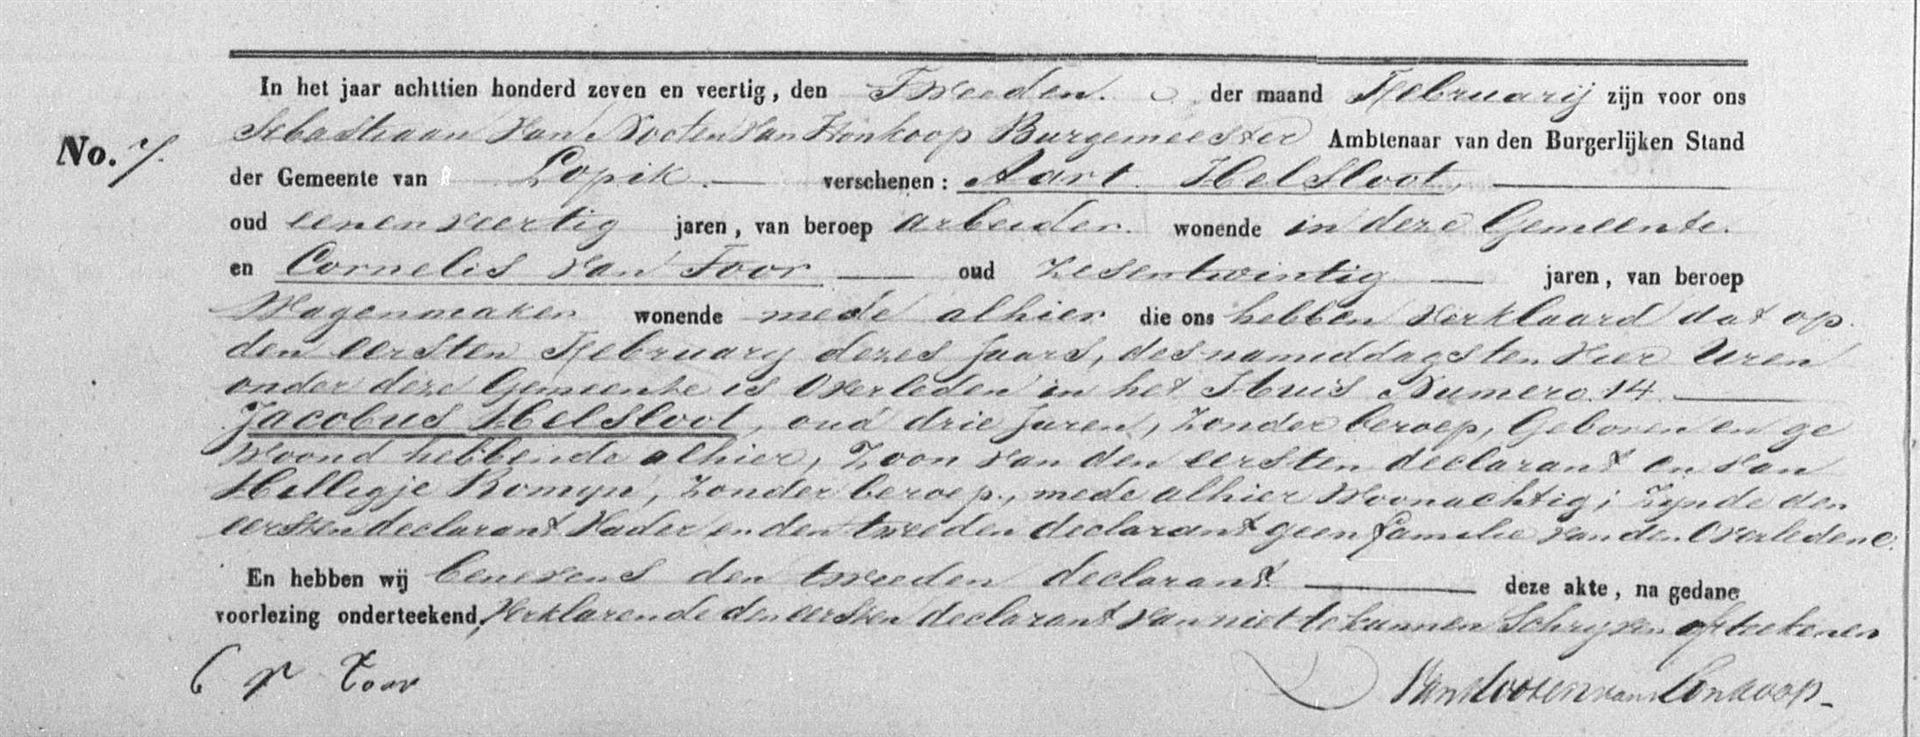 In het jaar achttien honderd zeven en veertig, den Tweeden. der maand Februarij zijn voor ons
No. 7. Sebastiaan van Nooten van Honkoop Burgemeester Ambtenaar van den Burgerlijken Stand
der Gemeente van Lopik. verschenen: Aart Helsloot,
oud eenenveertig jaren, van beroep arbeider. wonende in deze Gemeente.
en Cornelis van Toor oud zesentwintig jaren, van beroep
Wagenmaker wonende mede alhier die ons hebben verklaard dat op
den eersten February dezes Jaars, des namiddags ten vier Uren
onder deze Gemeente is Overleden in het Huis Numero 14
Jacobus Helsloot, oud drie Jaren, Zonder beroep, Geboren en ge
Woond hebbende alhier, Zoon van den eersten declarant en van
Hilligje Romyn, Zonder beroep, mede alhier Woonachtig; Zynde den
eersten declarant Vader en den tweeden declarant geen familie van den Overledene.
En hebben wij benevens den tweeden declarant deze akte, na gedane
voorlezing onderteekend, Verklarende den eersten declarant van niet te kunnen Schryven of teekenen
C V Toor VanNootenvanHonkoop